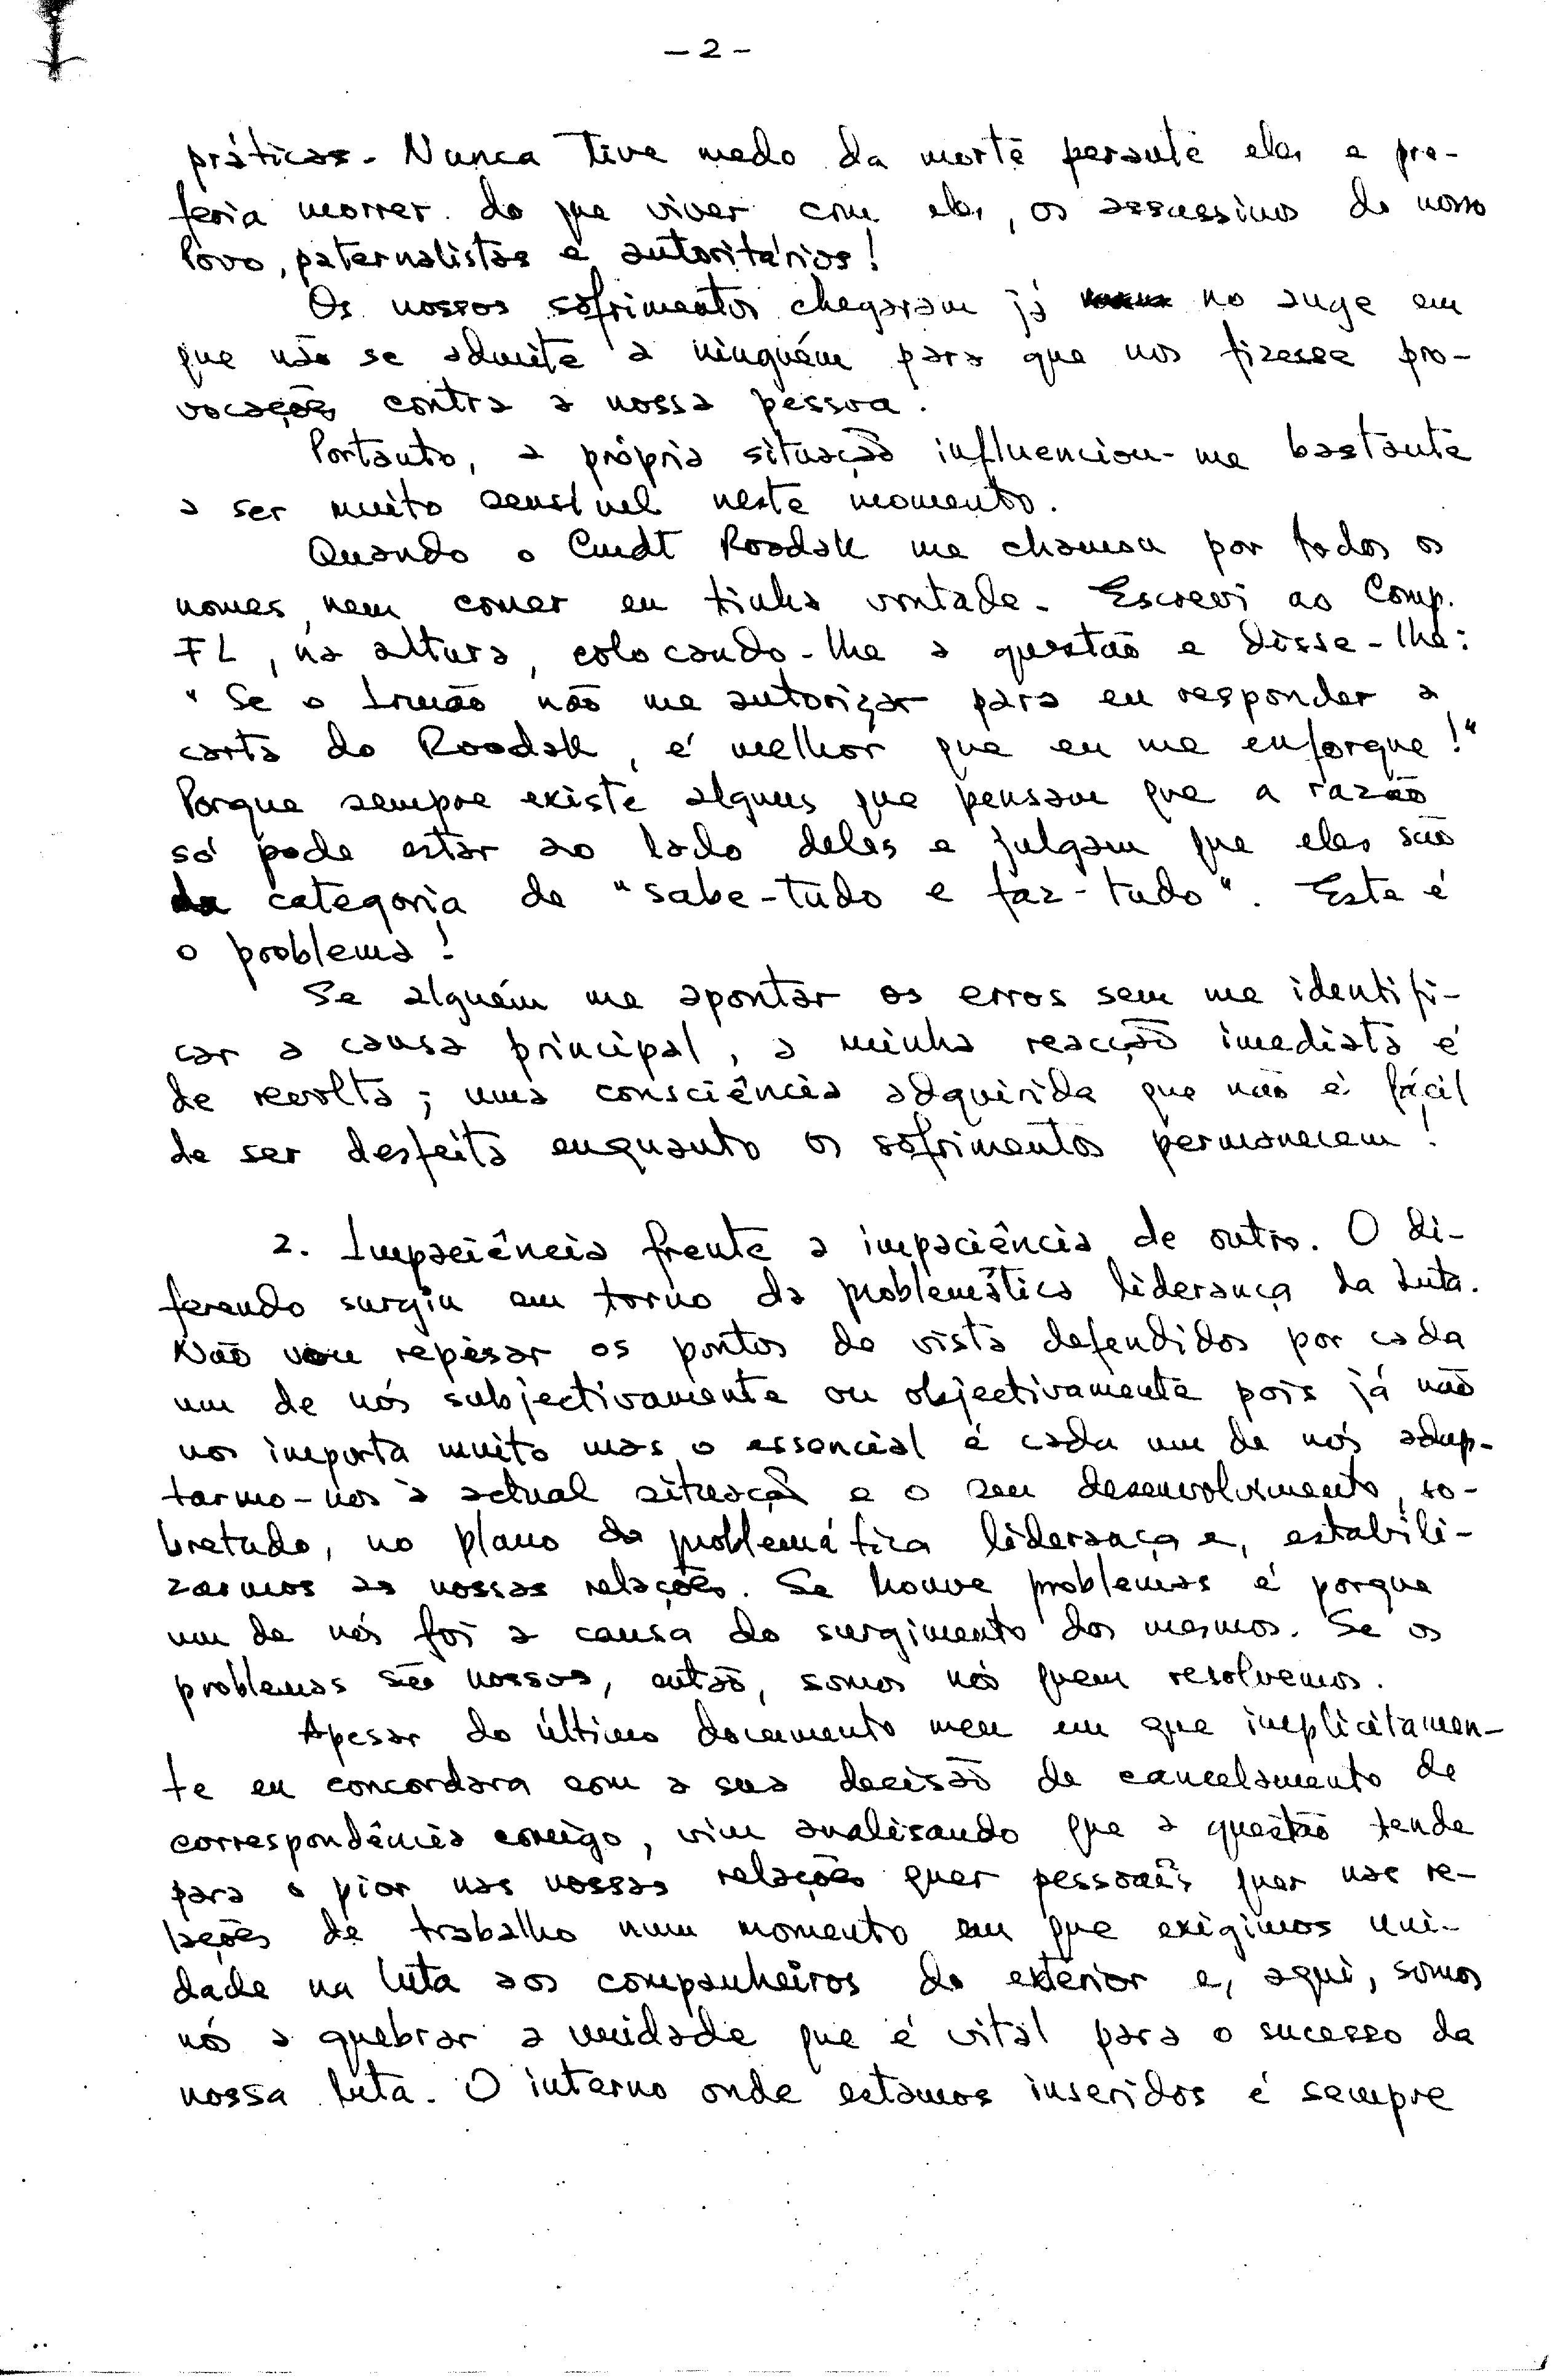 - 2 -
práticas. Nunca tive medo da morte perante eles e pre-
feria morrer do que viver com eles, os assassinos do nosso
Povo, paternalistas e autoritários!
Os nossos sofrimentos chegaram já no auge em
que não se admite a ninguém para que nos fizesse pro-
vocações contra a nossa pessoa.
Portanto, a própria situação influenciou-me bastante
a ser muito sensível neste momento.
Quando o Cmdt Roodak me chamou por todos os
nomes, nem comer eu tinha vontade. Escrevi ao Comp.
FL, na altura, colocando-lhe a questão e disse-lhe:
"Se o Irmão não me autorizar para eu responder a
carta do Roodak, é melhor que eu me enforque!"
Porque sempre existe alguns que pensam que a razão
só pode estar ao lado deles e julgam que eles são
da categoria de "sabe-tudo e faz-tudo". Este é
o problema!
Se alguém me apontar os erros sem me identifi-
car a causa principal, a minha reacção imediata é
de revolta; uma consciência adquirida que não é fácil
de ser desfeita enquanto os sofrimentos permanecem!
2. Impaciência frente a impaciência de outro. O di-
ferendo surgiu em torno da problemática liderança da Luta.
Não vou repisar os pontos de vista defendidos por cada
um de nós subjectivamente ou objectivamente pois já não
nos importa muito mas o essencial é cada um de nós adap-
tarmo-nos à actual situação e o seu desenvolvimento, so-
bretudo, no plano da problemática liderança e, estabili-
zarmos as nossas relações. Se houve problemas é porque
um de nós foi a causa do surgimento dos mesmos. Se os
problemas são nossos, então, somos nós quem resolvemos.
Apesar do último documento meu em que implicitamen-
te eu concordara com a sua decisão de cancelamento de
correspondência comigo, vim analisando que a questão tende
para o pior nas nossas relações quer pessoais quer nas re-
lações de trabalho num momento em que exigimos uni-
dade na luta aos companheiros do exterior e, aqui, somos
nós a quebrar a unidade que é vital para o sucesso da
nossa luta. O interno onde estamos inseridos é sempre